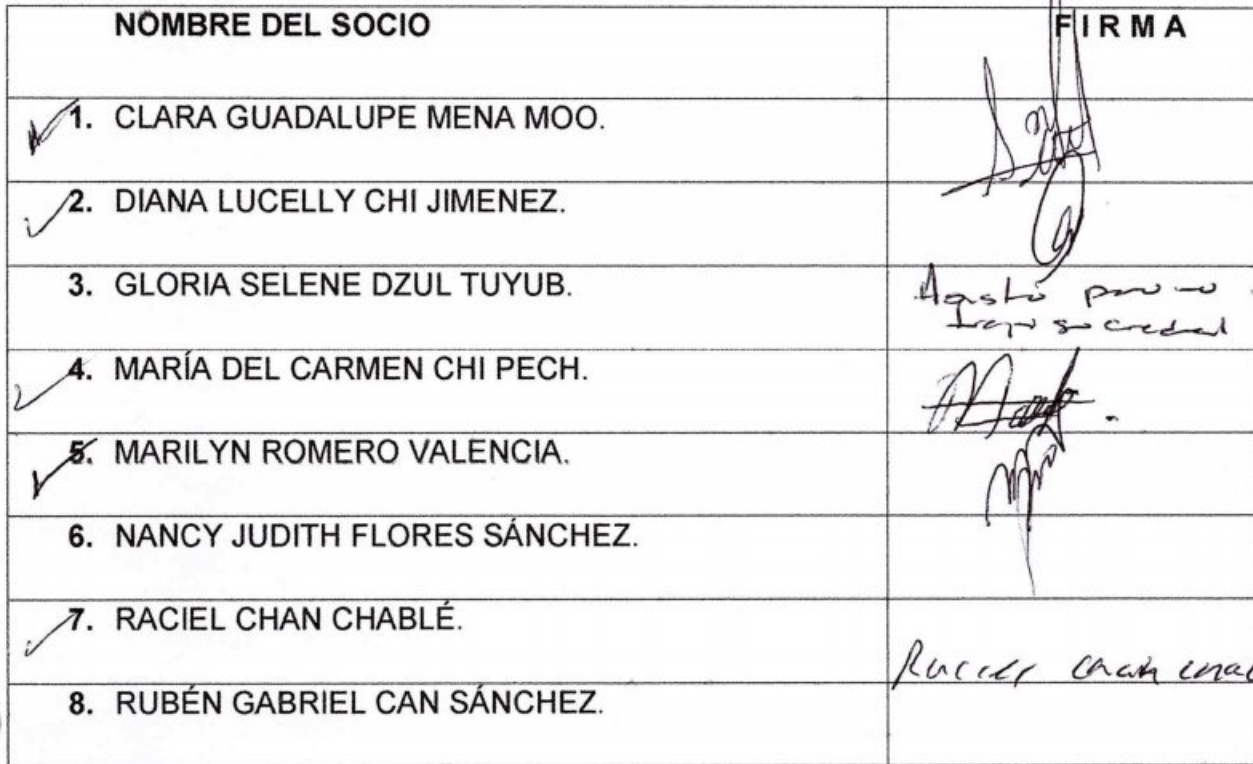 NOMBRE DEL SOCIO
FIRMA
1. CLARA GUADALUPE MENA MOO.
2. DIANA LUCELLY CHI JIMENEZ.
3. GLORIA SELENE DZUL TUYUB.
su
4. MARÍA DEL CARMEN CHI PECH.
5. MARILYN ROMERO VALENCIA.
6. NANCY JUDITH FLORES SÁNCHEZ.
7. RACIEL CHAN CHABLÉ.
Raciel chan
8. RUBÉN GABRIEL CAN SÁNCHEZ.